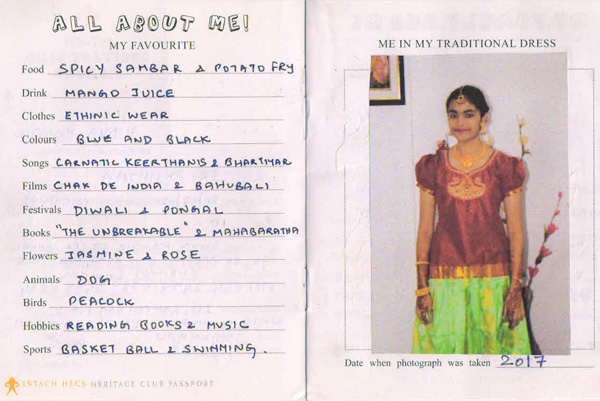 ALL ABOUT ME!
MY FAVOURITE
Food SPICY SAMBAR & POTATO FRY
Drink MANGO JUICE
Clothes ETHINIC WEAR
Colours BLUE AND BLACK
Songs CARNATIC KEERTHANIS & BHARTIYAR
Films CHAK DE INDIA & BAHUBALI
Festivals DIWALI & PONGAL
Books "THE UNBREAKABLE" & MAHABARATHA
Flowers JASMINE & ROSE
Animals DOG
Birds PEACOCK
Hobbies READING BOOKS & MUSIC
Sports BASKET BALL & SWIMMING.
INTACH HECS HERITAGE CLUB PASSPORT
ME IN MY TRADITIONAL DRESS
Date when photograph was taken 2017